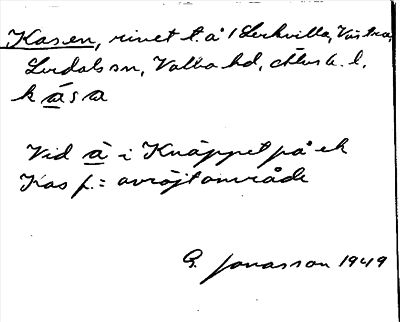 Kasen, rivet t. å 1 Lockvilla, Västra
Lerdals sn, Valbo hd, Älvsb. l.
k a s a
Vid å i Knäppet på ek
Kas f. = avröjt område
G. Jonasson 1949